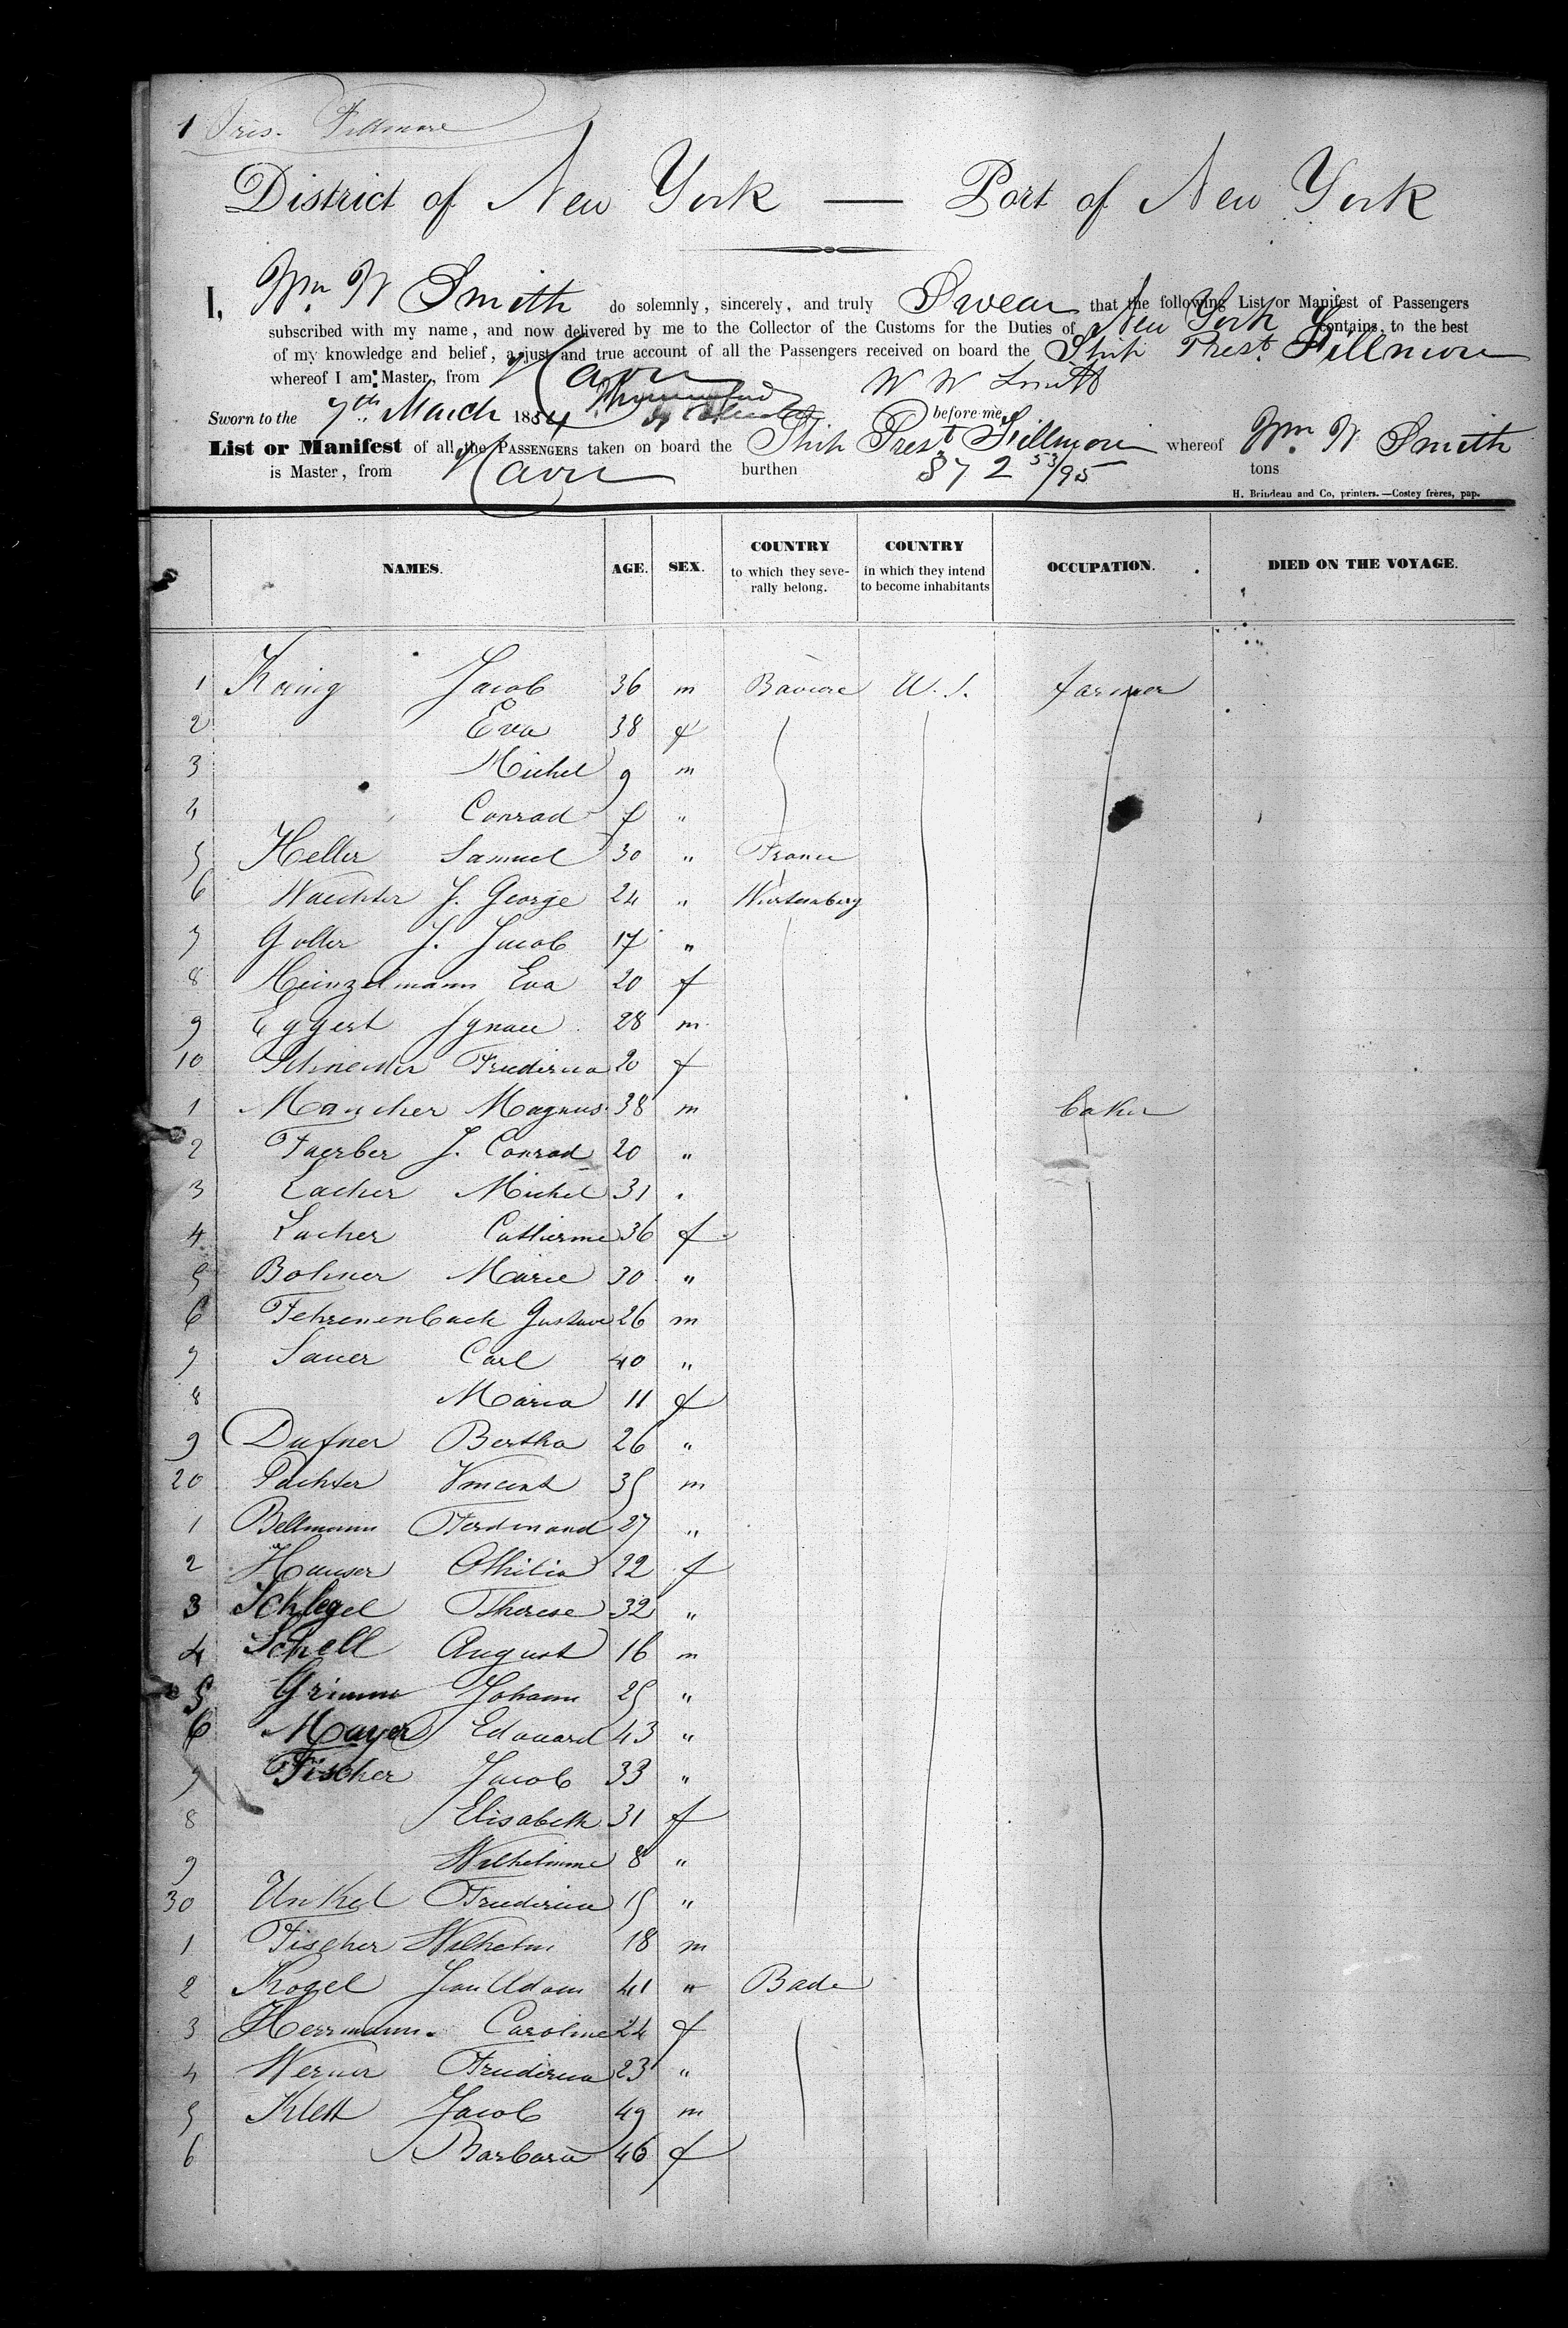 1 Pres. Fillmore
District of New York — Port of New York
I, Wm. W Smith do solemnly, sincerely, and truly Swear that the following List or Manifest of Passengers
subscribed with my name, and now delivered by me to the Collector of the Customs for the Duties of New York contains, to the best
of my knowledge and belief, a just and true account of all the Passengers received on board the Ship Prest. Fillmore
whereof I am Master, from Havre W W Smith
Sworn to the 7th March 1854 before me
List or Manifest of all the Passengers taken on board the Ship Prest. Fillmore whereof Wm. W Smith
is Master, from Havre burthen 872 53/95 tons
H. Brindeau and Co, printers.—Costey frères, pap.
NAMES. AGE. SEX. COUNTRY to which they severally belong. COUNTRY in which they intend to become inhabitants OCCUPATION. DIED ON THE VOYAGE.
1 Koenig Jacob 36 m Baviere U.S. farmer
2 Eva 38 f
3 Michel 9 m
4 Conrad 7 "
5 Heller Samuel 30 " France
6 Waechter J. George 24 " Wurtemberg
7 Goller J. Jacob 17 "
8 Heinzelmann Eva 20 f
9 Eggert Ignace 28 m
10 Schneider Friederica 20 f
1 Maucher Magnus 38 m baker
2 Faerber J. Conrad 20 "
3 Lacher Michel 31 "
4 Lacher Catherine 36 f
5 Bohner Marie 30 "
6 Fehrenenback Gustave 26 m
7 Sauer Carl 40 "
8 Maria 11 f
9 Dufner Bertha 26 "
20 Pachter Vincent 35 m
1 Bellmann Ferdinand 27 "
2 Hauser Othilia 22 f
3 Schlegel Therese 32 "
4 Schell August 16 m
5 Grimm Johann 25 "
6 Mayer Edouard 43 "
7 Fischer Jacob 33 "
8 Elisabeth 31 f
9 Wilhelmine 8 "
30 Unkel Friederica 15 "
1 Fischer Wilhelm 18 m
2 Kogel Jean Adam 41 " Bade
3 Herrmann. Caroline 24 f
4 Werner Friederica 23 "
5 Klett Jacob 49 m
6 Barbara 46 f